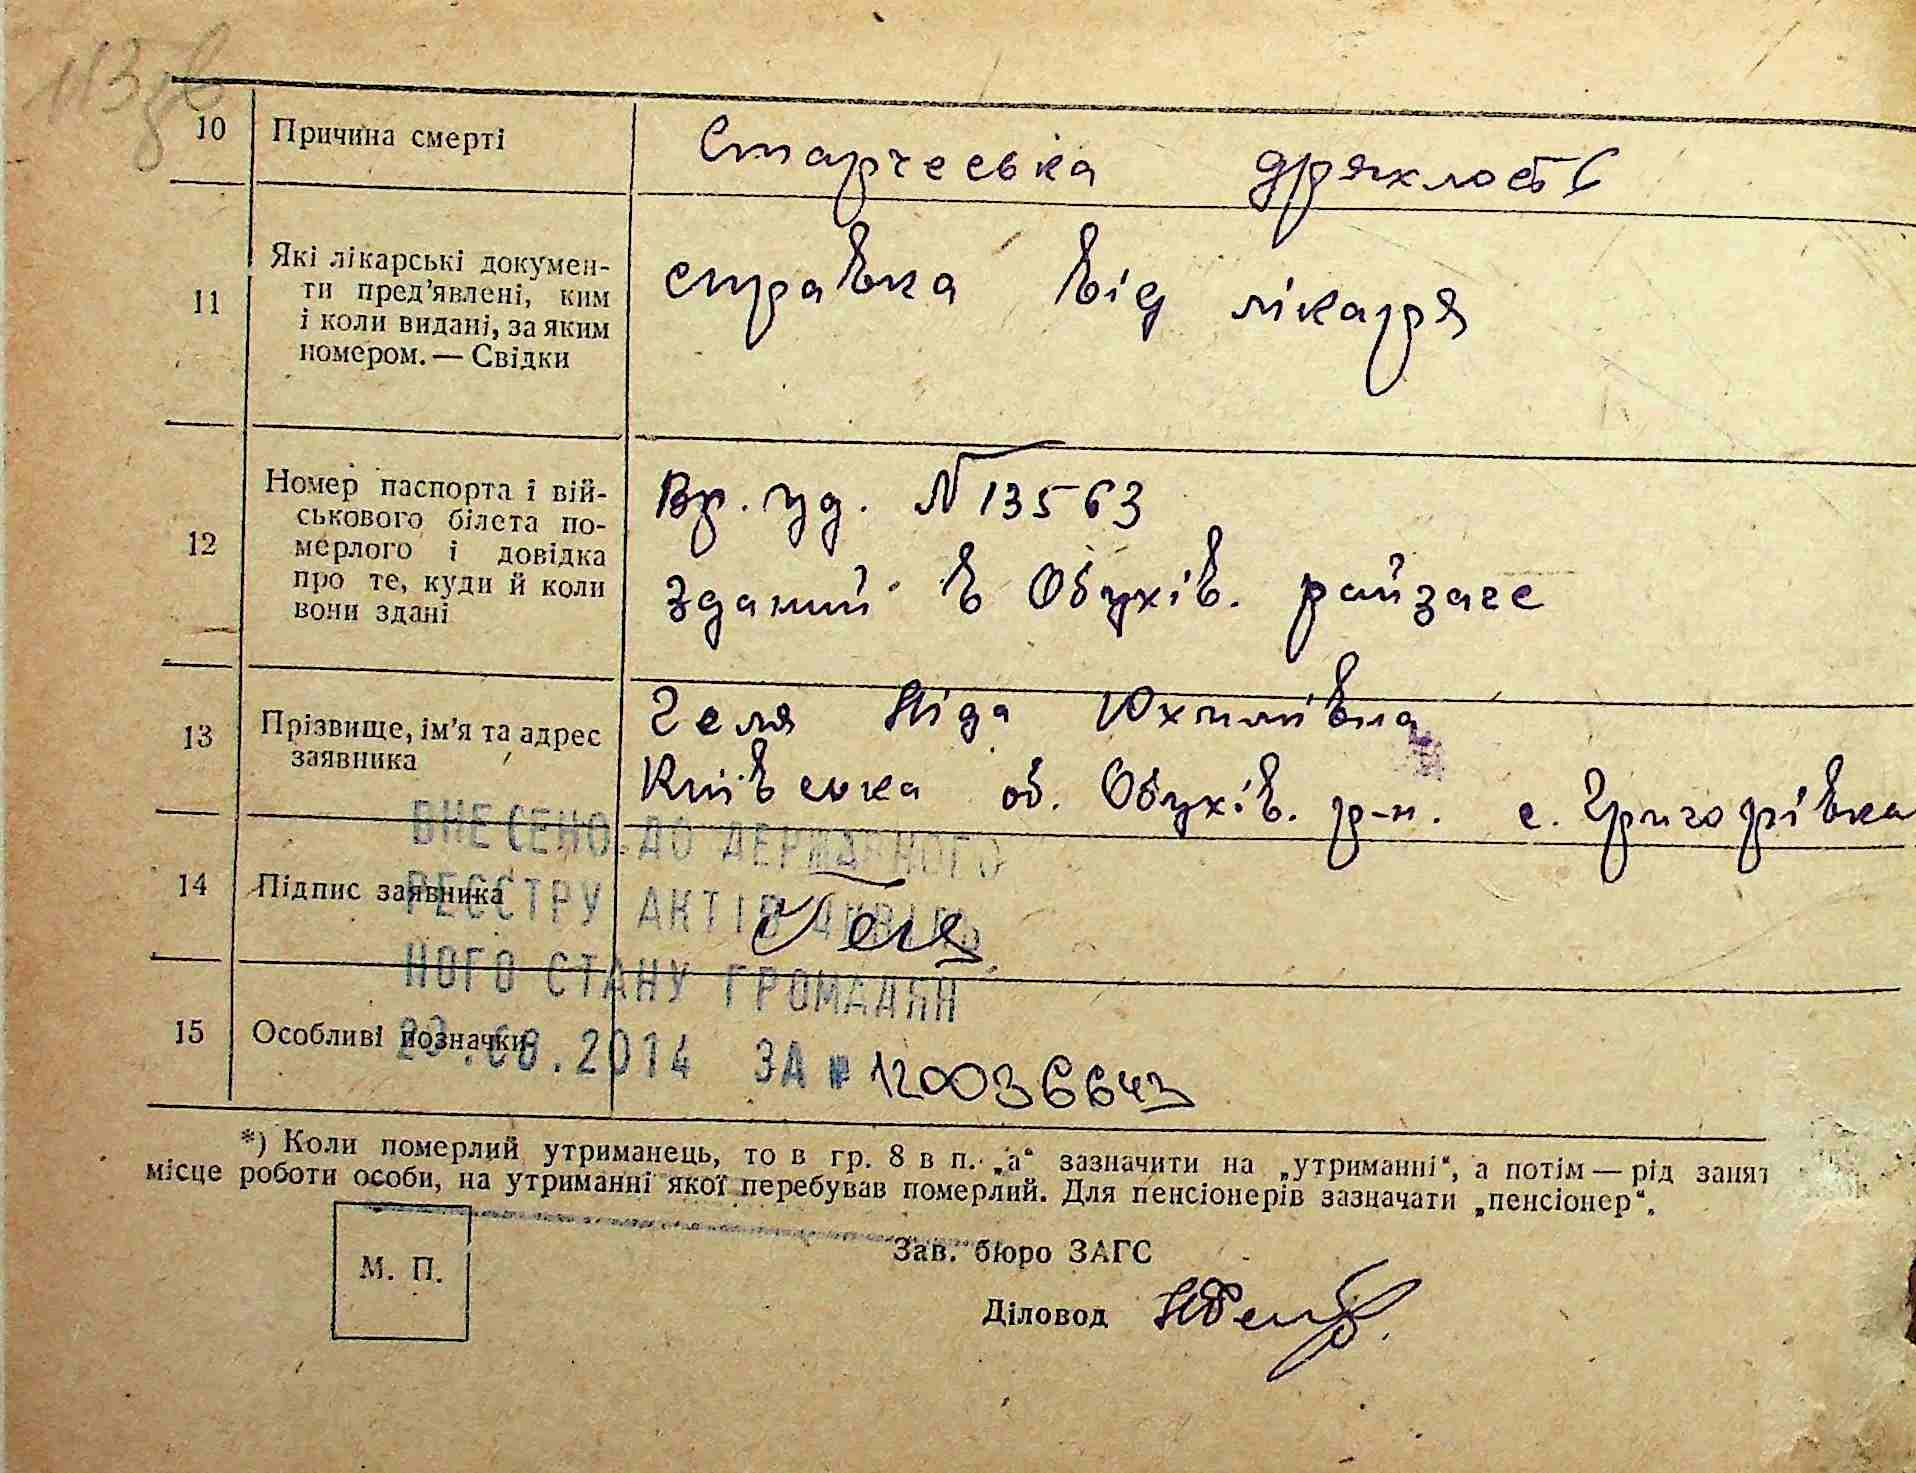 10 Причина смерті Старческа дряхлость
11 Які лікарські докумен-
ти пред'явлені, ким
і коли видані, за яким
номером. — Свідки
справка від лікаря
12 Номер паспорта і вій-
ськового білета по-
мерлого і довідка
про те, куди й коли
вони здані
Вр. уд. № 13563
Зданий в Обухів. райзагс
13 Прізвище, ім'я та адрес
заявника
Геля Ліда Юхимівна
Київська об. Обухів. р-н. с. Григорівка
14 Підпис заявника Геля
15 Особливі позначки
ВНЕСЕНО ДО ДЕРЖАВНОГО
РЕЄСТРУ АКТІВ ЦИВІЛЬ
НОГО СТАНУ ГРОМАДЯН
.08.2014 ЗА № 120036643
*) Коли померлий утриманець, то в гр. 8 в п. „а“ зазначити на „утриманні“, а потім — рід занят
місце роботи особи, на утриманні якої перебував померлий. Для пенсіонерів зазначати „пенсіонер“.
М. П.
Зав. бюро ЗАГС
Діловод